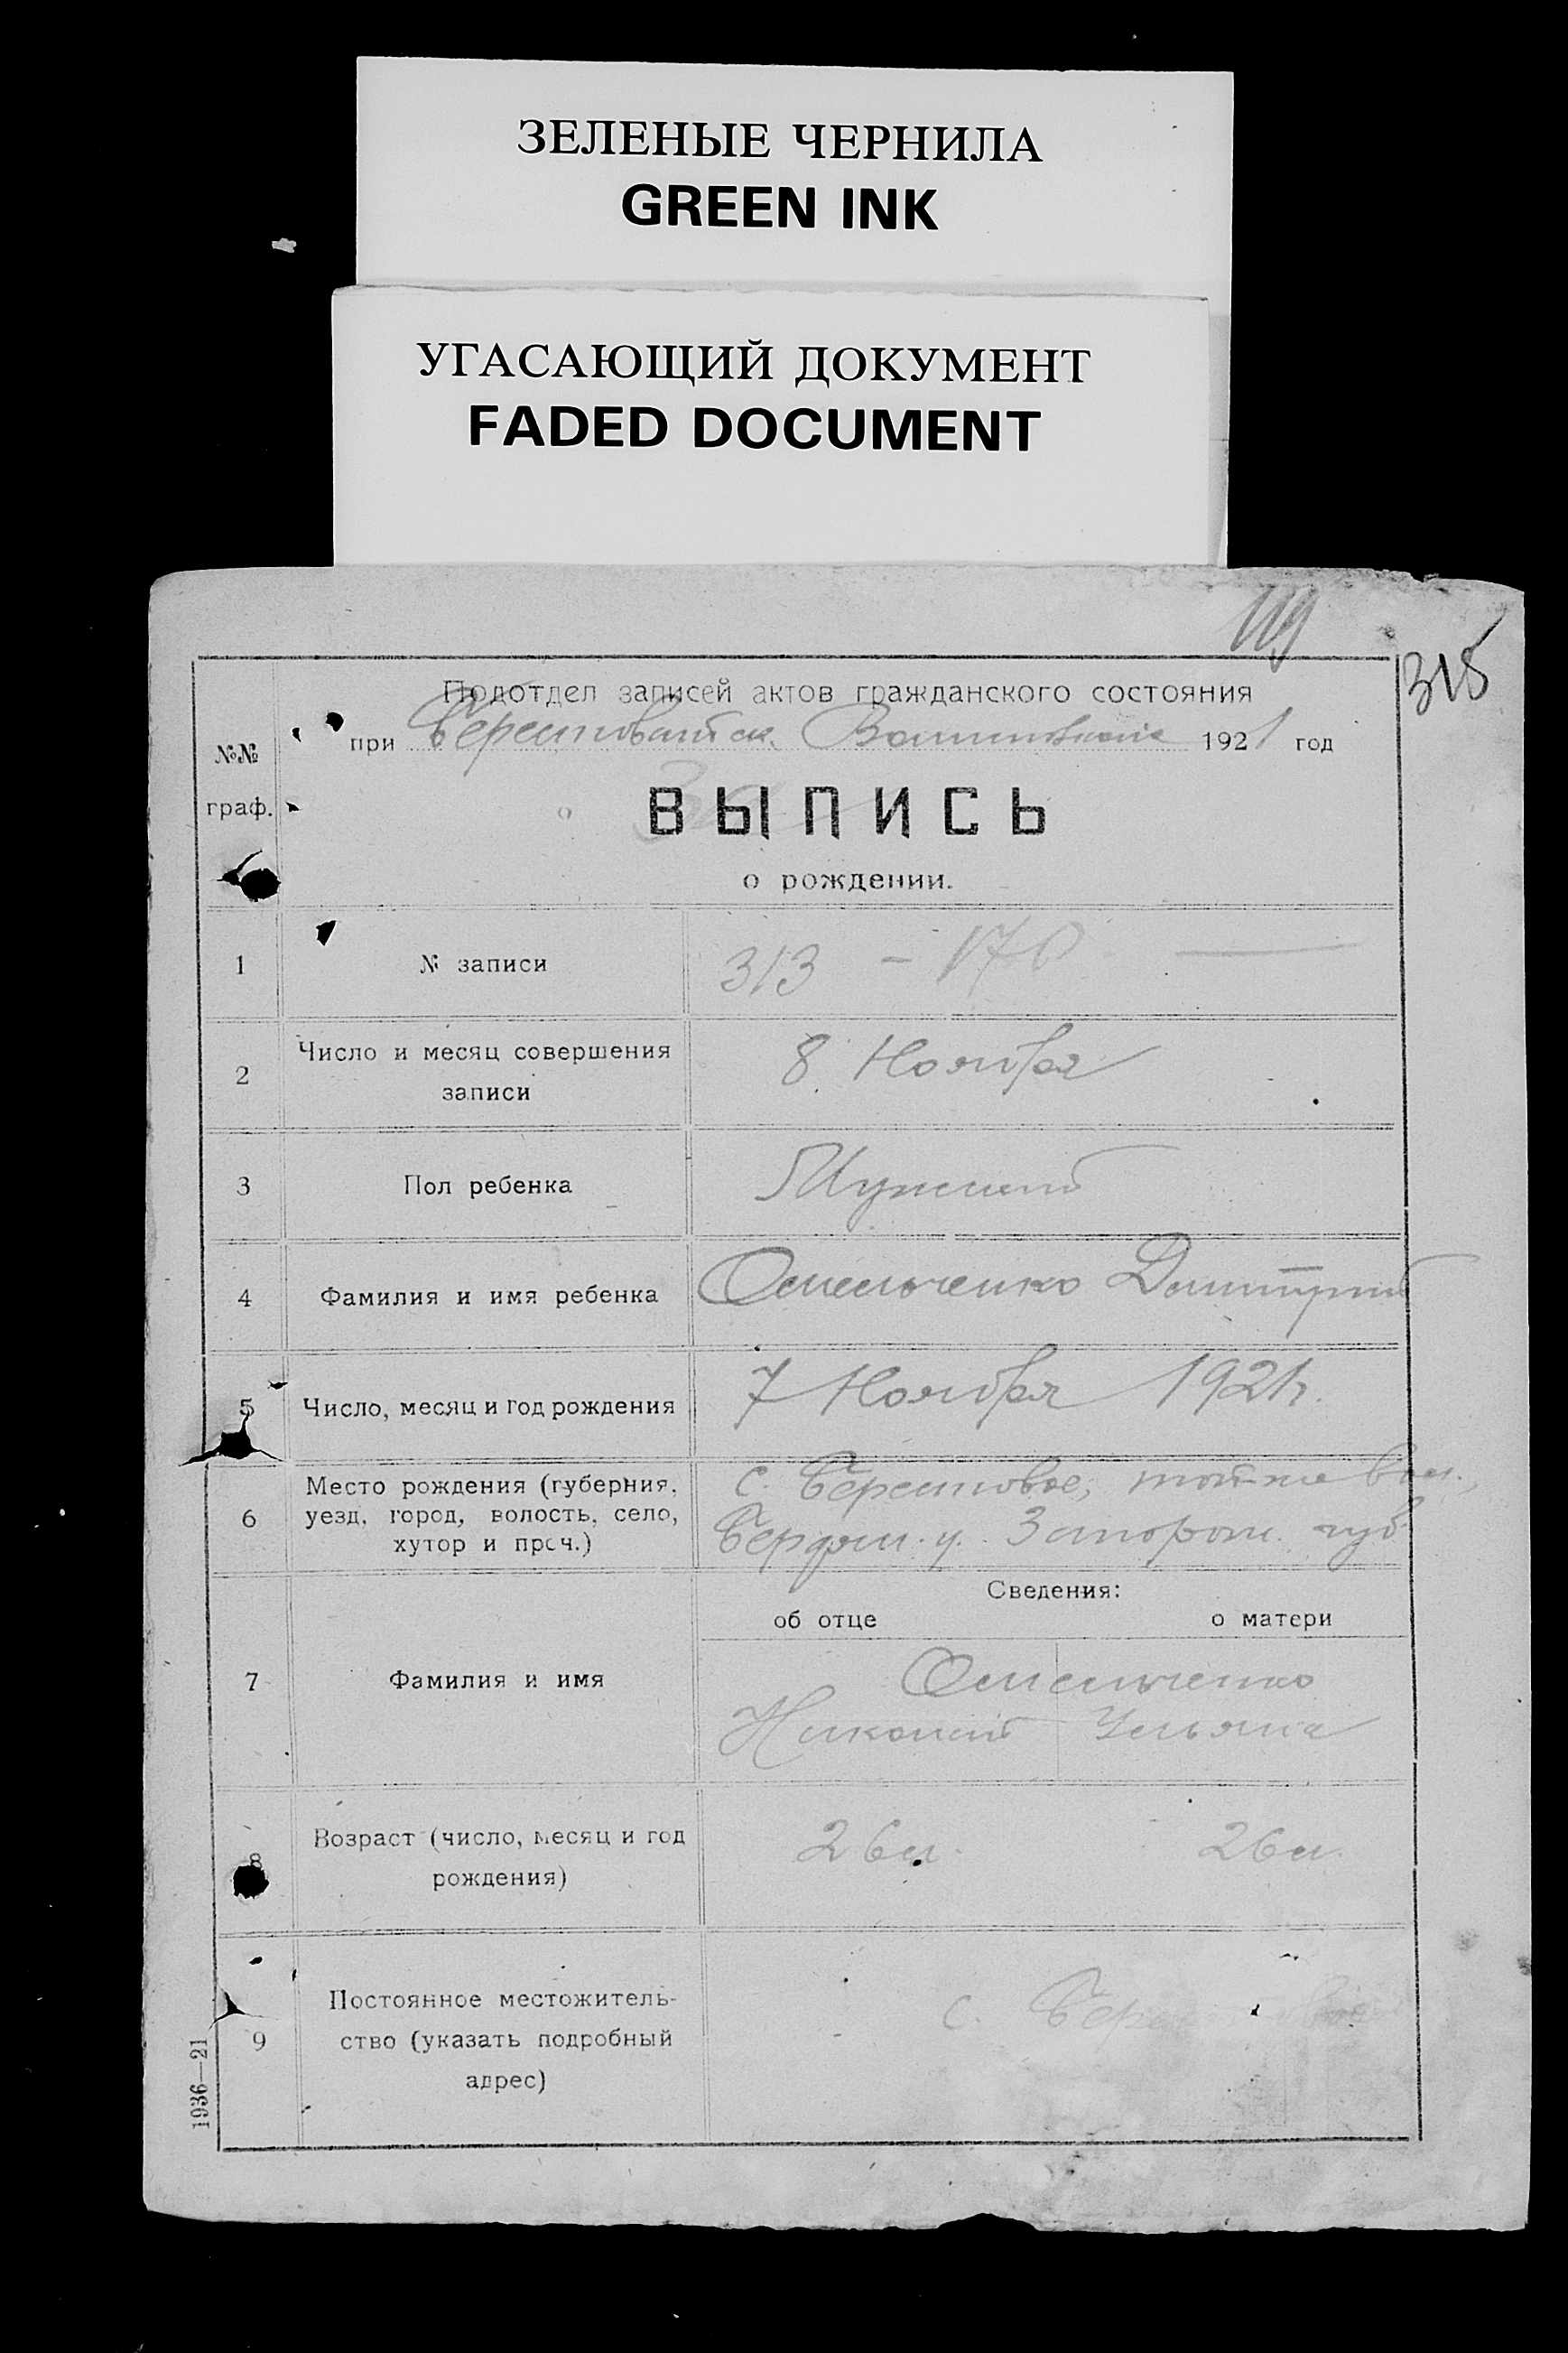 ЗЕЛЕНЫЕ ЧЕРНИЛА
GREEN INK
УГАСАЮЩИЙ ДОКУМЕНТ
FADED DOCUMENT
119
315
Подотдел записей актов гражданского состояния
при Берестоватск. 1921 год
№№
граф.
ВЫПИСЬ
о рождении.
1 № записи 313 – 170
2 Число и месяц совершения 8 Ноября
записи
3 Пол ребенка Мужской
4 Фамилия и имя ребенка Омельченко Дмитрий
5 Число, месяц и год рождения 7 Ноября 1921 г.
6 Место рождения (губерния, с. Берестовое, той-же вол.,
уезд, город, волость, село, Бердян. у. Запорож. губ.
хутор и проч.)
Сведения:
об отце о матери
7 Фамилия и имя Омельченко
Николай Ульяна
8 Возраст (число, месяц и год 26 л. 26 л.
рождения)
9 Постоянное местожитель-
ство (указать подробный с. Берестовое
адрес)
1936—21